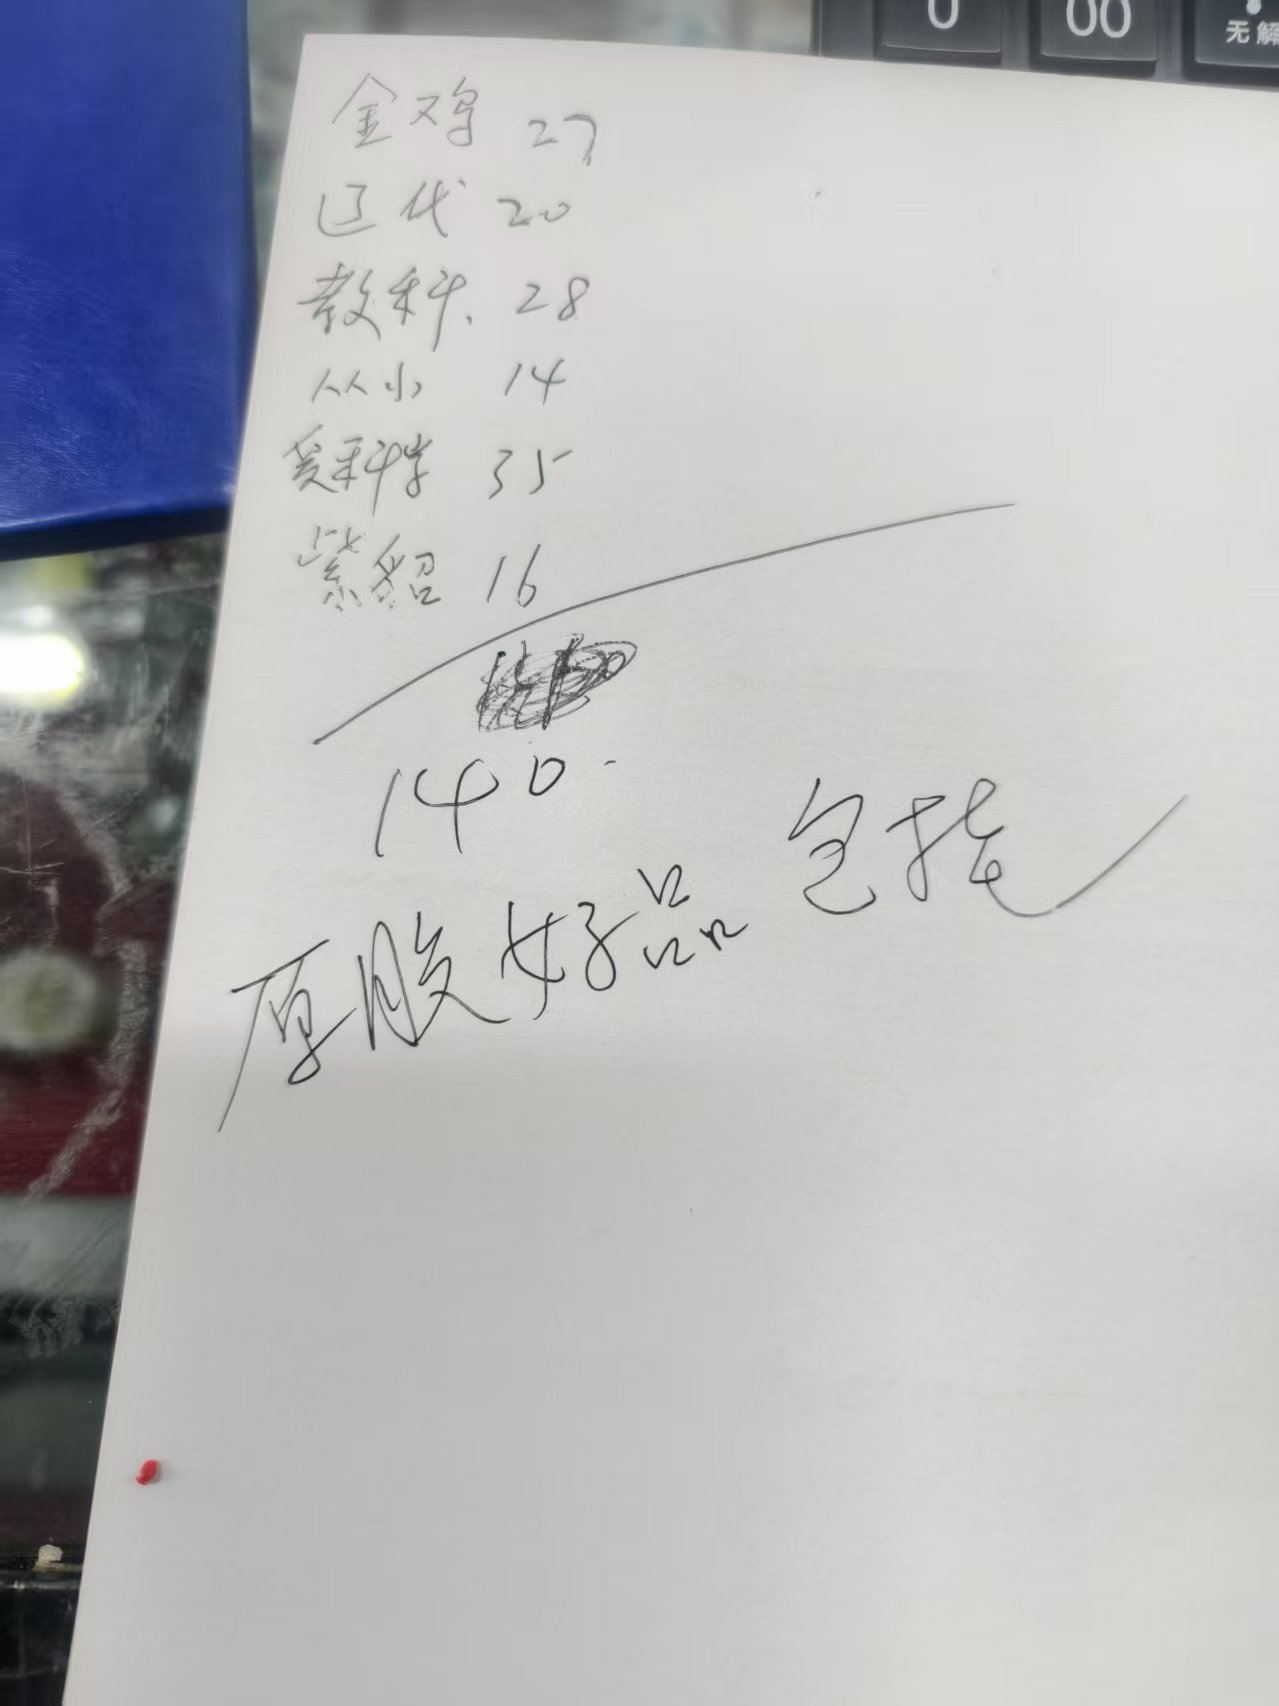 0 00 无解
金鸡 27
辽代 20
教科. 28
从小 14
爱科学 35
紫貂 16
140.
原胶好品 包挂